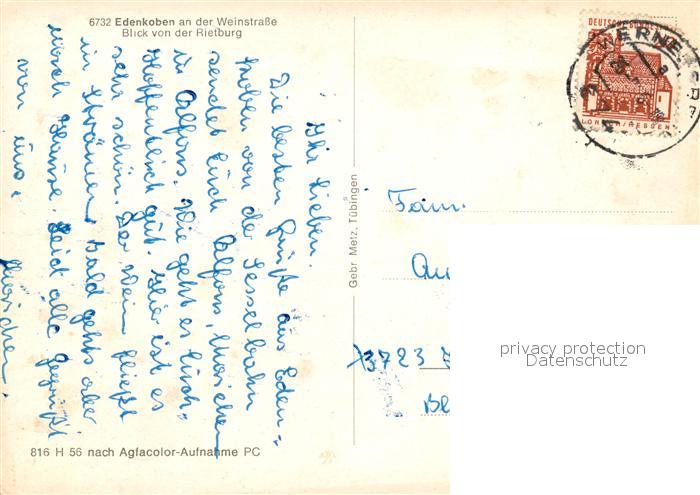 6732 Edenkoben an der Weinstraße
Blick von der Rietburg
Ihr Lieben.
Die besten Grüße aus Eden=
koben von der Sesselbahn
sendet Euch Alfons, Mariechen
u. Alfons. Wie geht es Euch
Hoffentlich gut. Hier ist es
sehr schön. Der Wein fließt
in Strömen. Bald gehts aber
nach Hause. Seid alle gegrüßt
von uns.
Mariechen.
816 H 56 nach Agfacolor-Aufnahme PC
Gebr. Metz, Tübingen
DEUTSCHE BUNDESPOST
WERNE
LORSCH/HESSEN
Fam.
Au
3723
Be
privacy protection
Datenschutz